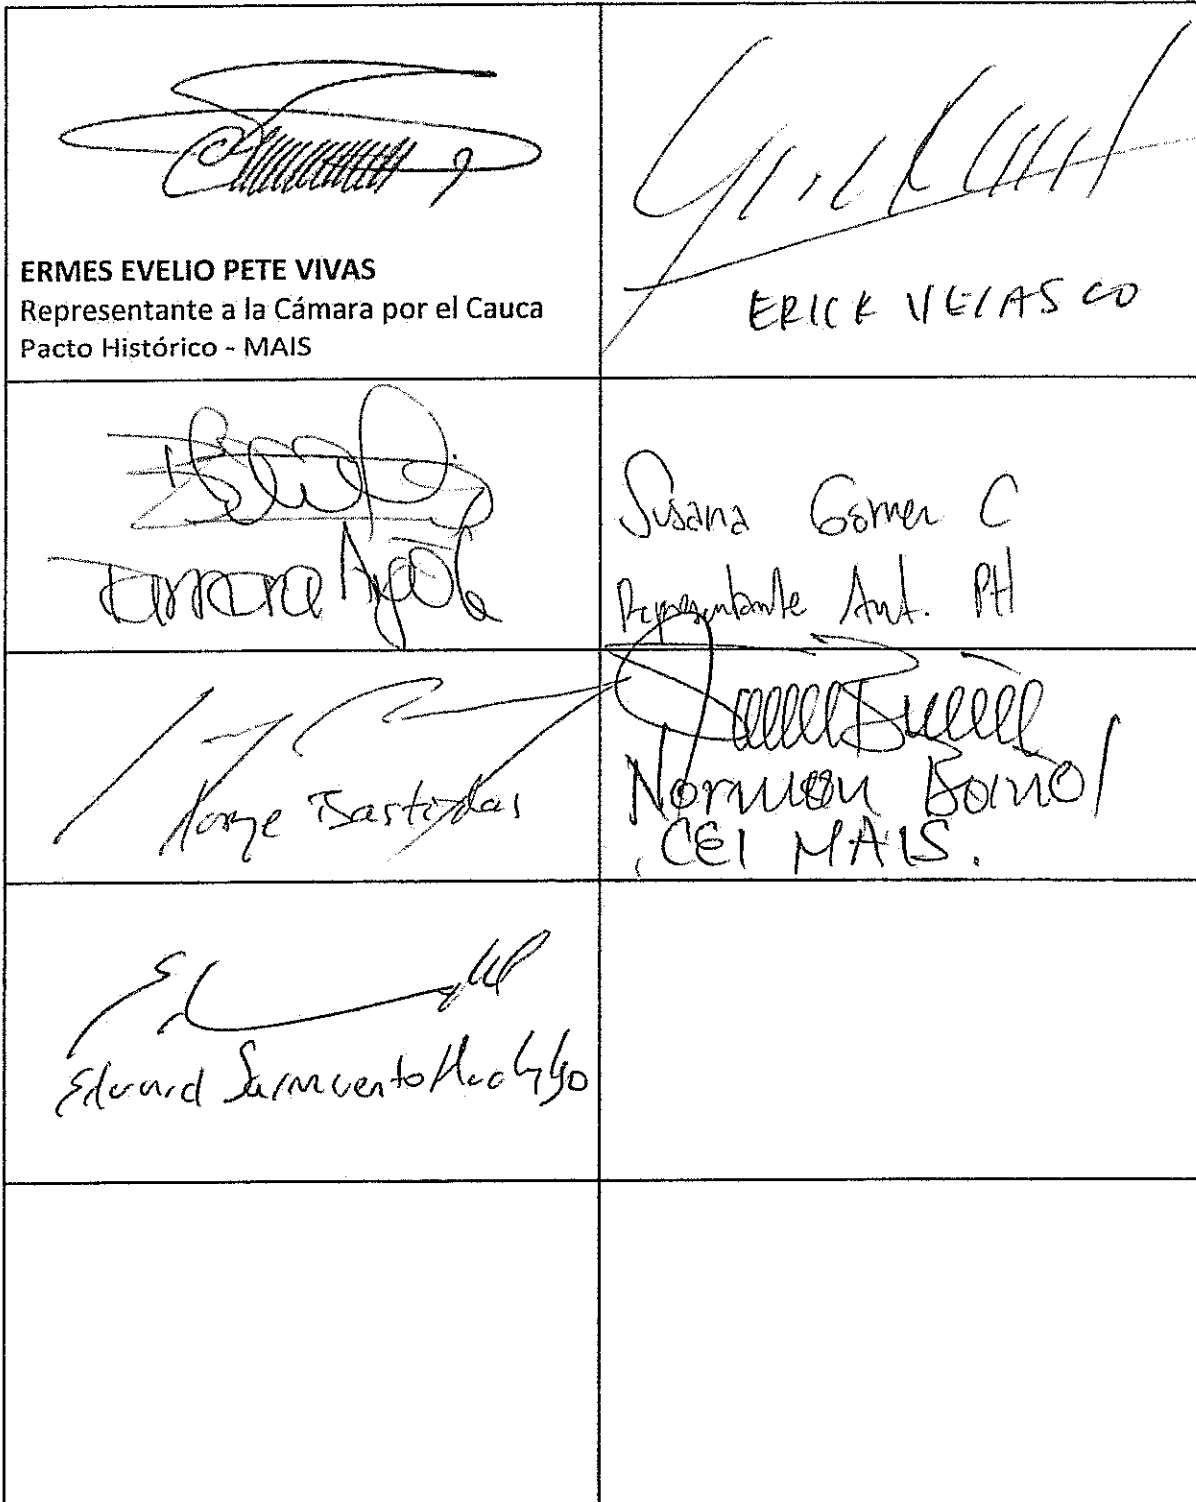 ERMES EVELIO PETE VIVAS
Representante a la Cámara por el Cauca
Pacto Histórico - MAIS
ERICK VELASCO
Susana Gómez C
Representante Ant. PH
Jorge Bastidas
Norman Bañol
CEI MAIS.
Eduard Sarmiento Hidalgo